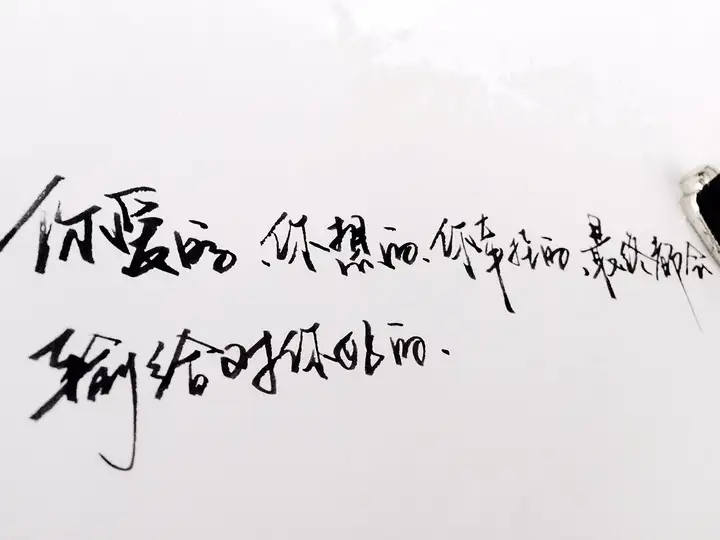 你爱的、你想的、你牵挂的、最终都会
输给对你好的.